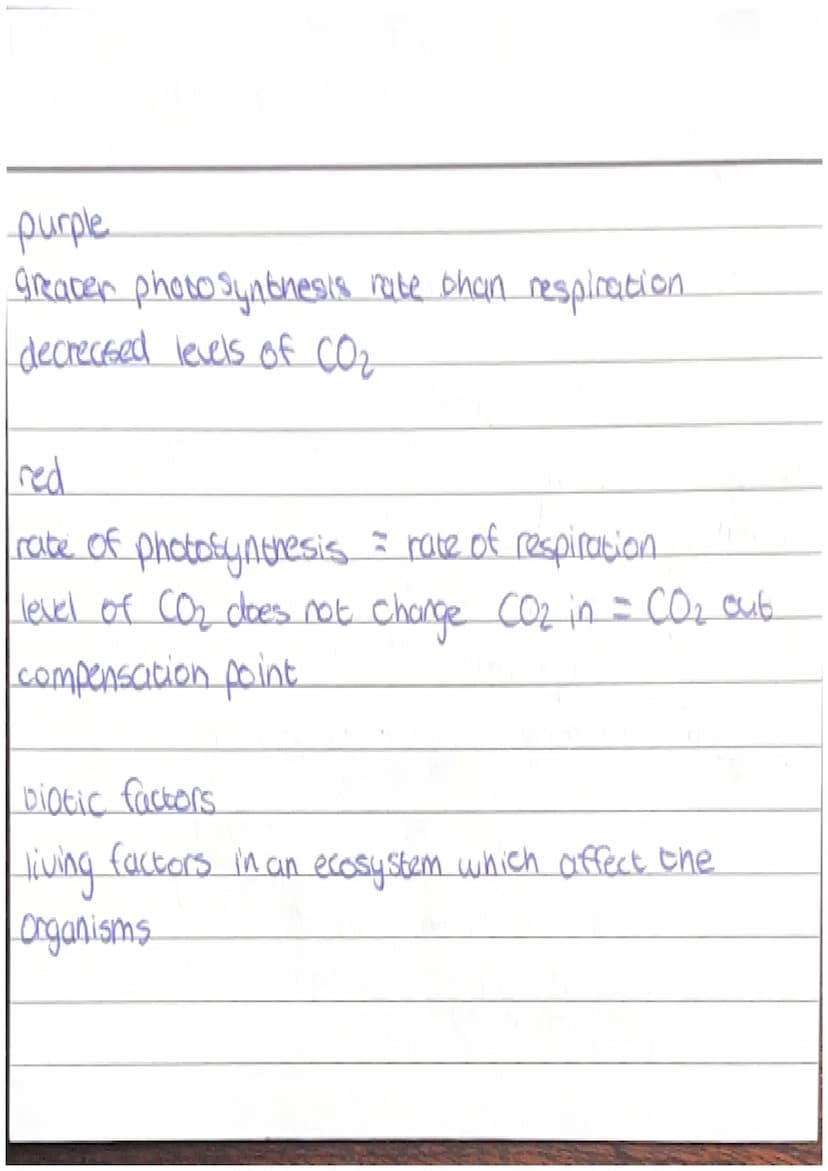 purple
greater photosynthesis rate than respiration
decreased levels of CO₂
red
rate of photosynthesis = rate of respiration
level of CO₂ does not change CO₂ in = CO₂ out
compensation point
biotic factors
living factors in an ecosystem which affect the
organisms